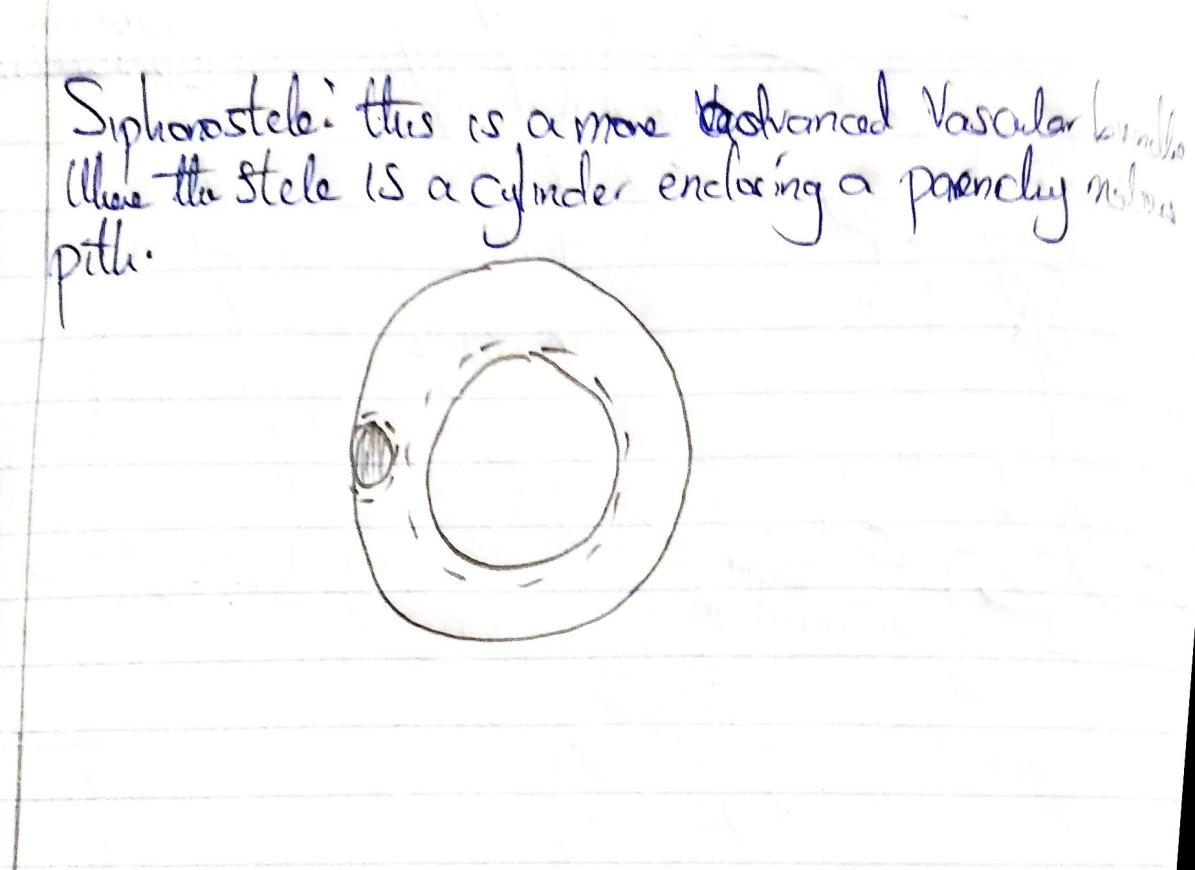 Siphonostele: this is a more advanced Vascular bundle
Where the stele is a cylinder enclosing a parenchymatous
pith.